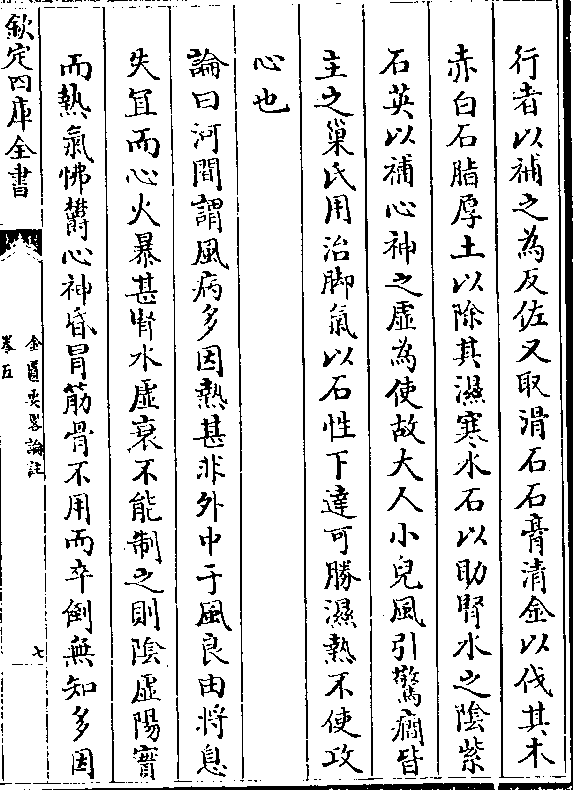 行者以補之為反佐又取滑石石膏清金以伐其木
赤白石脂厚土以除其濕寒水石以助腎水之陰紫
石英以補心神之虛為使故大人小兒風引驚癎皆
主之巢氏用治脚氣以石性下達可勝濕熱不使攻
心也
論曰河間謂風病多因熱甚非外中于風良由將息
失宜而心火暴甚腎水虛衰不能制之則陰虛陽實
而熱氣怫鬱心神昏冒筋骨不用而卒倒無知多因
欽定四庫全書
金匱要畧論註
卷五
七